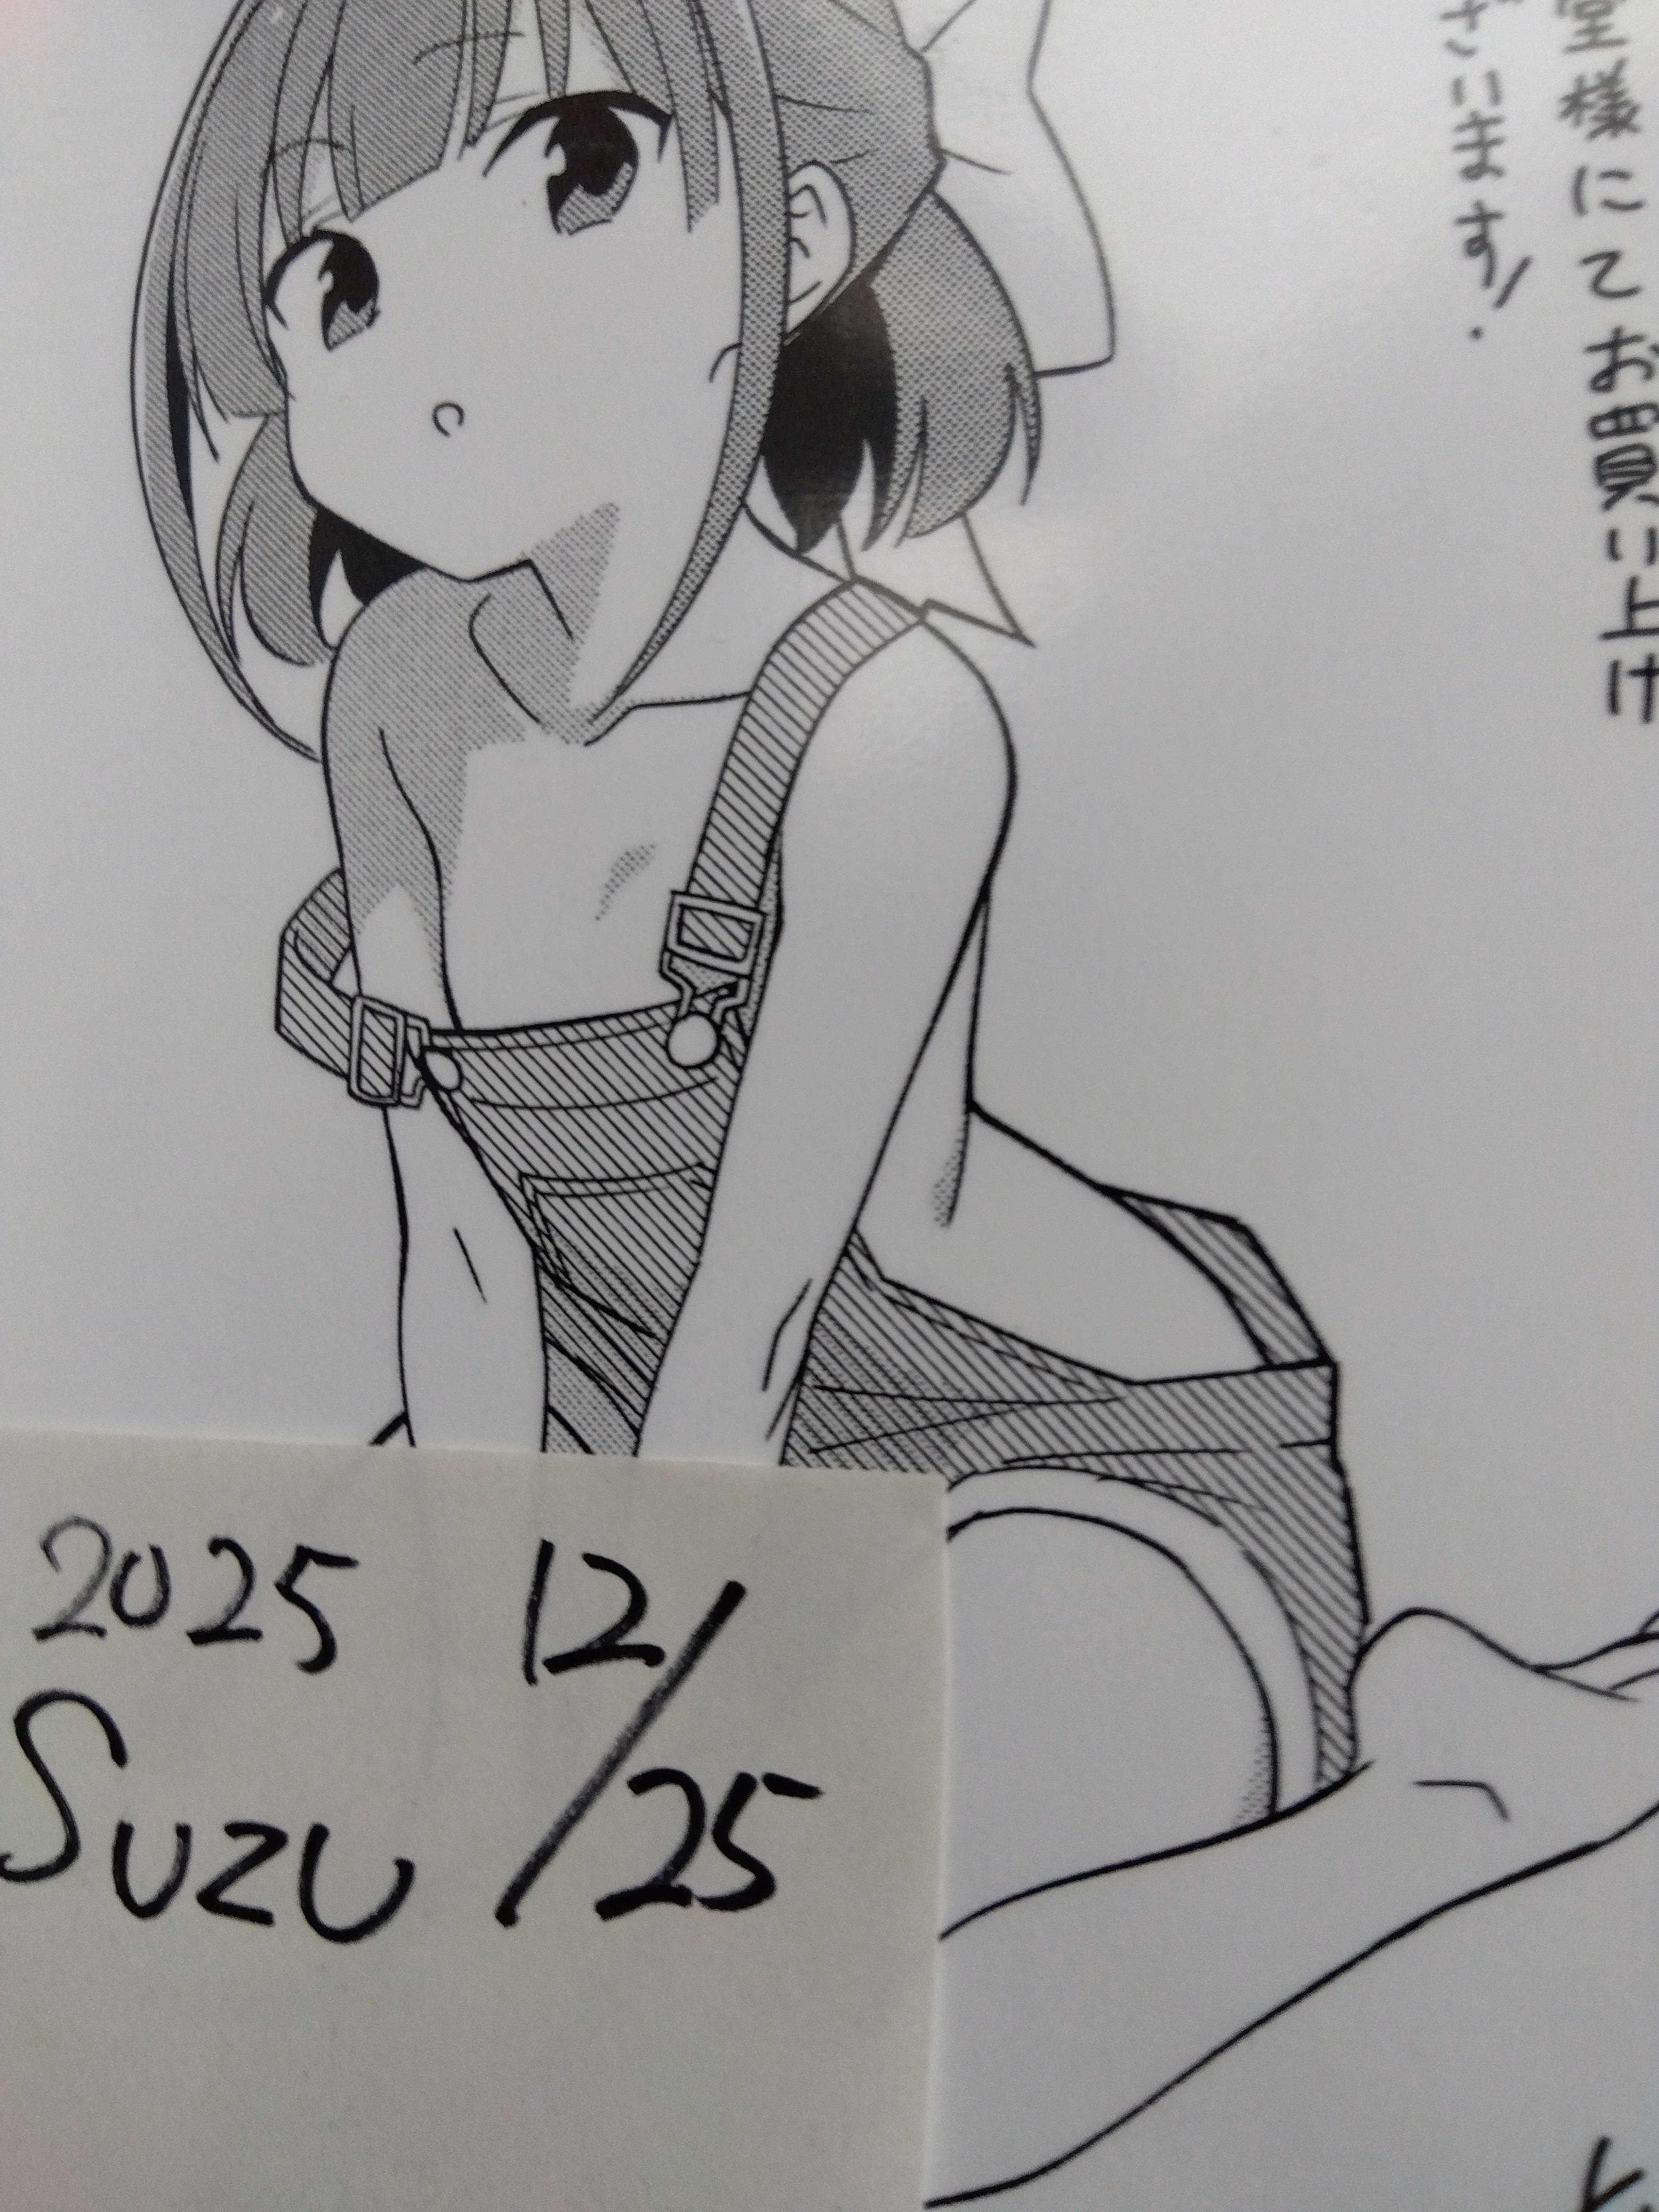 堂様にてお買い上げ
ざいます!
2025 12/25
Suzu